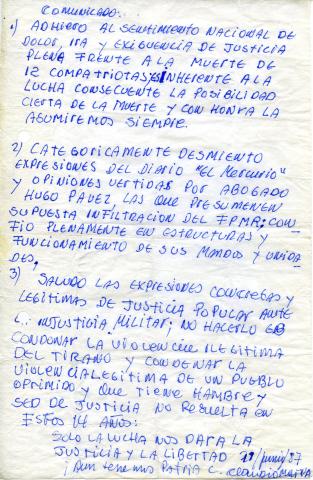 COMUNICADO:
1) ADHIERO AL SENTIMIENTO NACIONAL DE
DOLOR, IRA Y EXIGUENCIA DE JUSTICIA
PLENA FRENTE A LA MUERTE DE
12 COMPATRIOTAS, ES INHERENTE A LA
LUCHA CONSECUENTE LA POSIBILIDAD
CIERTA DE LA MUERTE Y CON HONRA LA
ASUMIREMOS SIEMPRE.
2) CATEGORICAMENTE DESMIENTO
EXPRESIONES DEL DIARIO "EL MERCURIO"
Y OPINIONES VERTIDAS POR ABOGADO
HUGO PAVEZ, LAS QUE PRESUMEN EN
SUPUESTA INFILTRACION DEL FPMR; CON
FIO PLENAMENTE EN ESTRUCTURAS Y
FUNCIONAMIENTO DE SUS MANDOS Y UNIDA
DES.
3) SALUDO LAS EXPRESIONES CONCRETAS Y
LEGITIMAS DE JUSTICIA POPULAR ANTE
INJUSTICIA MILITAR; NO HACERLO ES
CONDONAR LA VIOLENCIA ILEGITIMA
DEL TIRANO Y CONDENAR LA
VIOLENCIA LEGITIMA DE UN PUEBLO
OPRIMIDO Y QUE TIENE HAMBRE Y
SED DE JUSTICIA NO RESUELTA EN
ESTOS 14 AÑOS:
SOLO LA LUCHA NOS DARA LA
JUSTICIA Y LA LIBERTAD /junio/87
¡Aun tenemos Patria C. Claudio